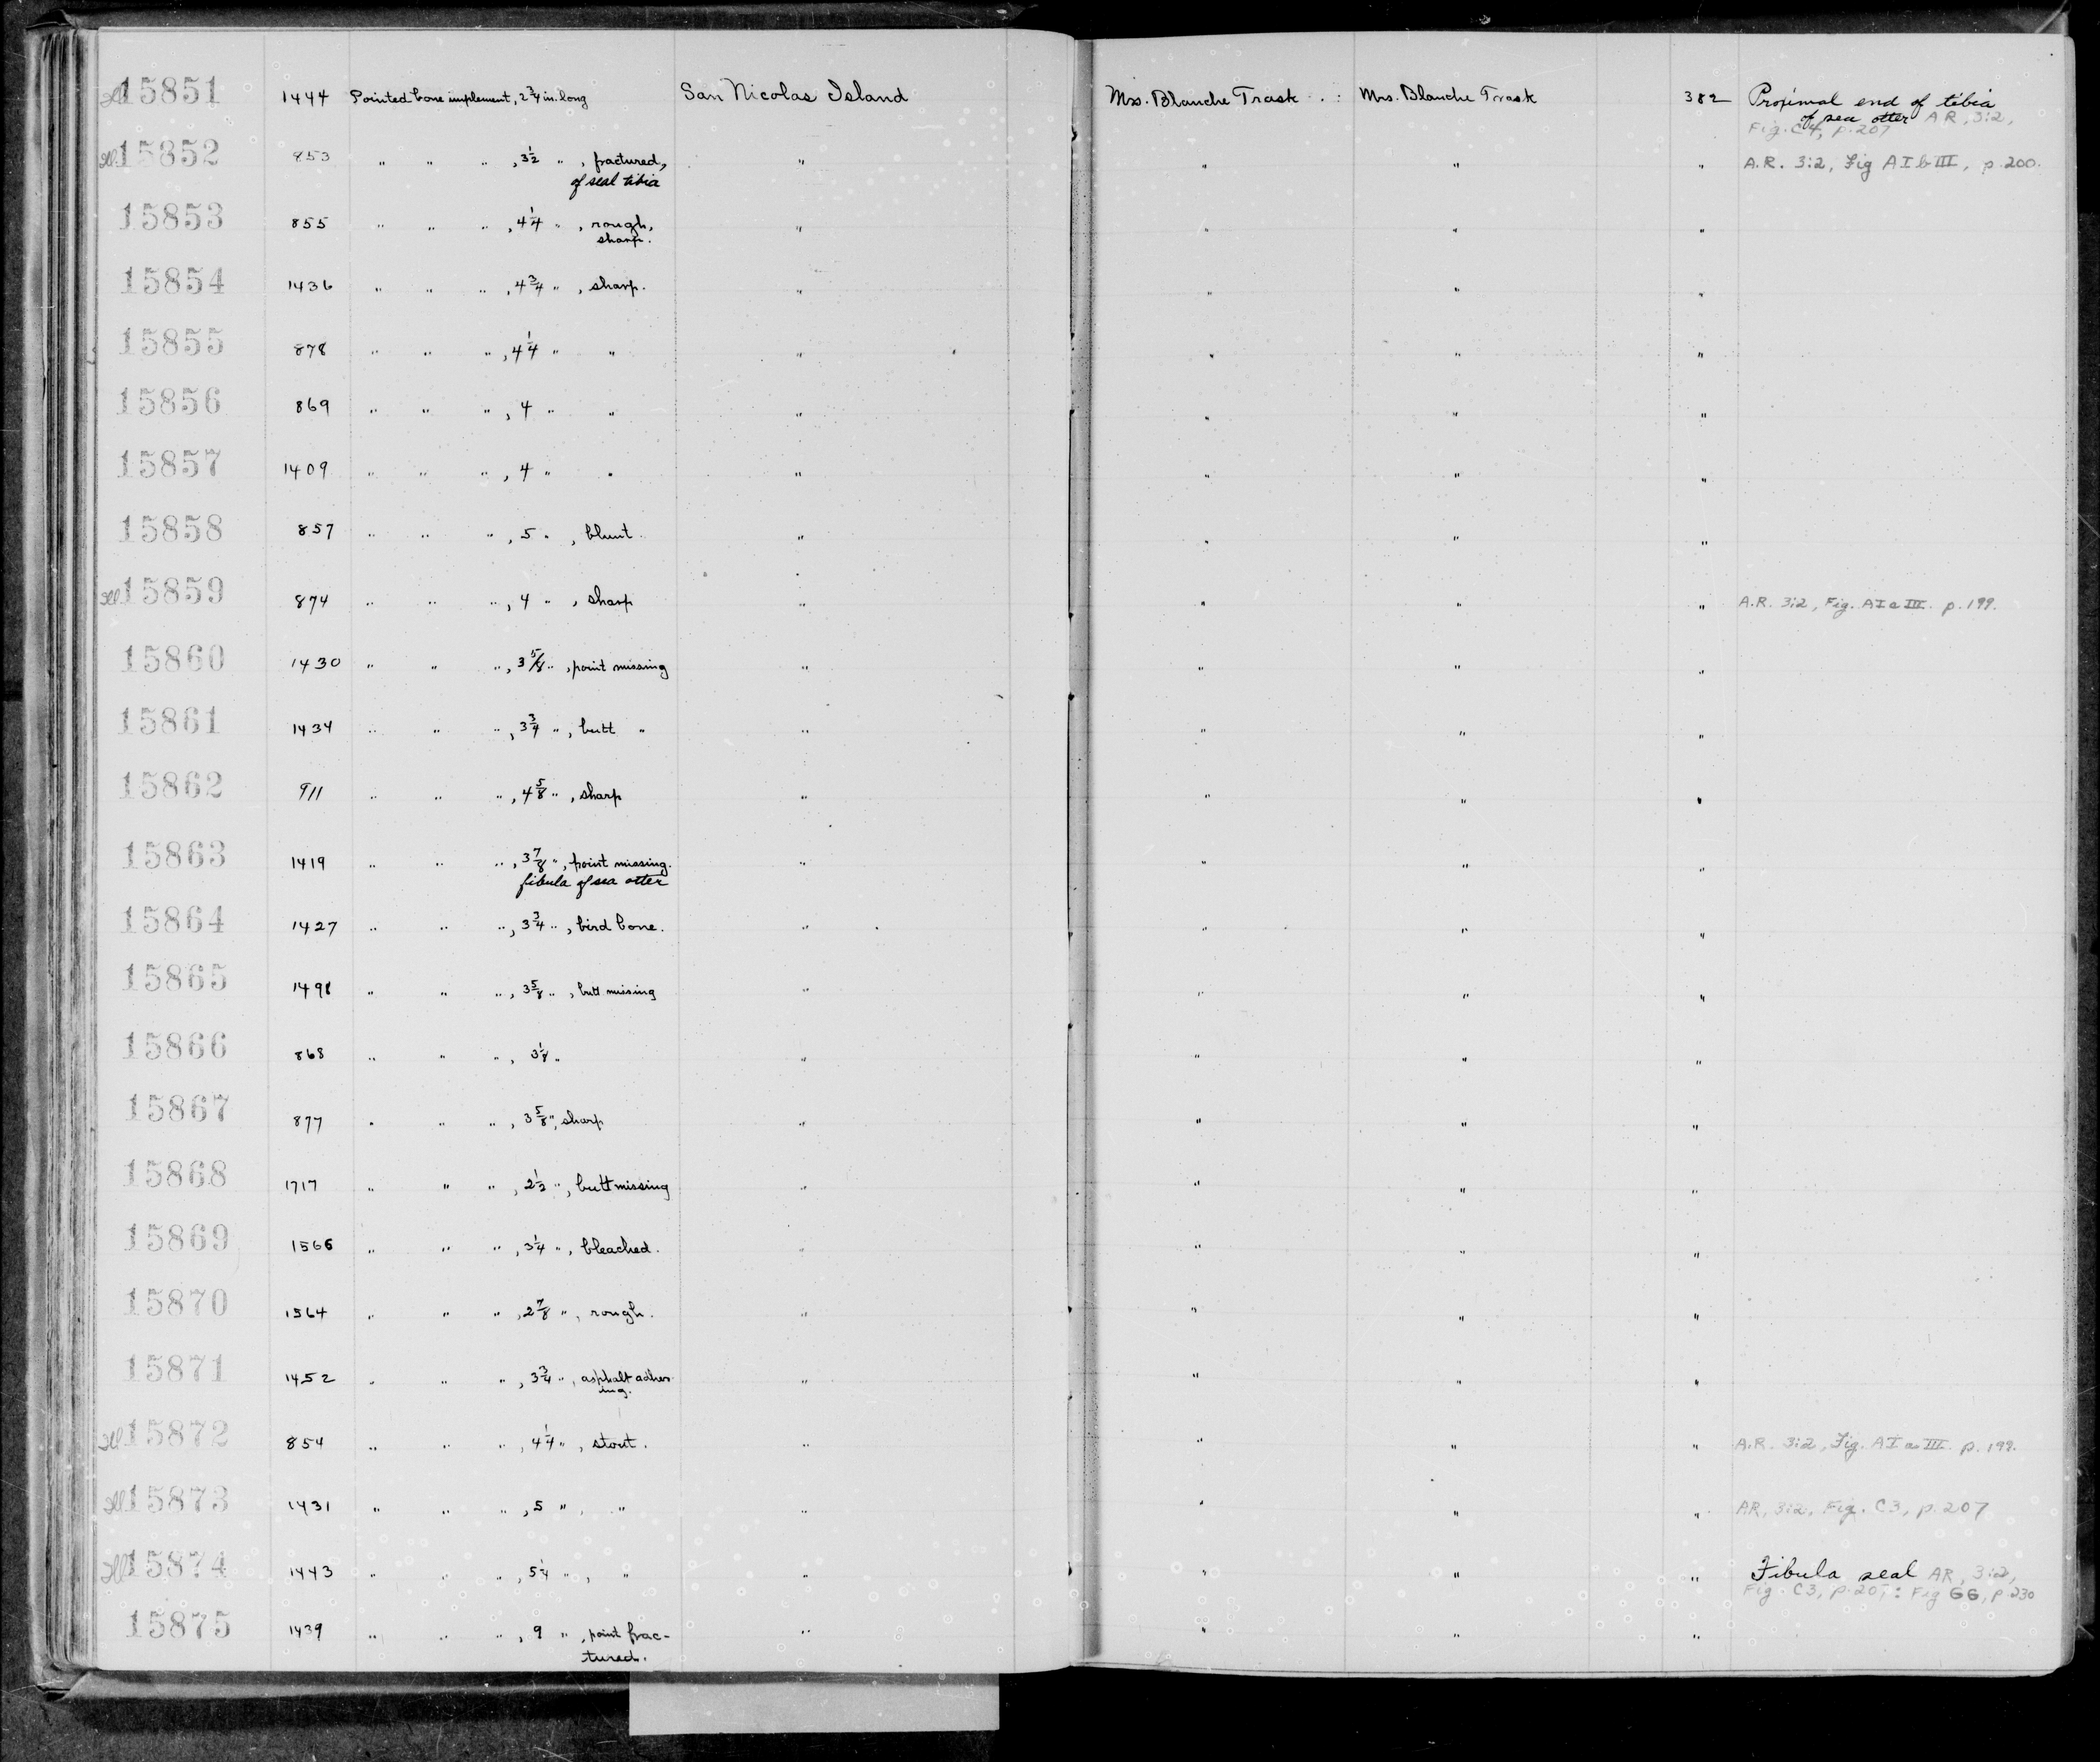 Ill 15851 1444 Pointed bone implement, 2 3/4 in. long San Nicolas Island Mrs. Blanche Trask Mrs. Blanche Trask 382 Proximal end of tibia
of sea otter AR, 3:2,
Fig. C4, p. 207
Ill 15852 853 " " " , 3 1/2 " , fractured, " " " " A.R. 3:2, Fig A I b III, p. 200.
of seal tibia
15853 855 " " " , 4 1/4 " , rough, " " " "
sharp.
15854 1436 " " " , 4 3/4 " , sharp. " " " "
15855 878 " " " , 4 1/4 " " " " " "
15856 869 " " " , 4 " " " " " "
15857 1409 " " " , 4 " " " " " "
15858 857 " " " , 5 " , blunt. " " " "
Ill 15859 874 " " " , 4 " , sharp " " " " A.R. 3:2, Fig. A I a III. p. 199.
15860 1430 " " " , 3 5/8 " , point missing " " " "
15861 1434 " " " , 3 3/4 " , butt " " " " "
15862 911 " " " , 4 5/8 " , sharp " " " "
15863 1419 " " " , 3 7/8 " , point missing. " " " "
fibula of sea otter
15864 1427 " " " , 3 3/4 " , bird bone. " " " "
15865 1498 " " " , 3 5/8 " , butt missing " " " "
15866 868 " " " , " " " " "
15867 877 " " " , 3 5/8 " , sharp " " " "
15868 1717 " " " , 2 1/2 " , butt missing " " " "
15869 1566 " " " , 3 1/4 " , bleached. " " " "
15870 1564 " " " , 2 7/8 " , rough. " " " "
15871 1452 " " " , 3 3/4 " , asphalt adher- " " " "
ing.
Ill 15872 854 " " " , 4 1/4 " , stout. " " " " A.R. 3:2, Fig. A I a III. p. 199.
Ill 15873 1431 " " " , 5 " , " " " " " AR, 3:2, Fig. C3, p. 207
Ill 15874 1443 " " " , 5 1/4 " , " " " " " Fibula seal AR, 3:2,
Fig. C3, p. 207; : Fig GG, p. 230
15875 1439 " " " , 9 " , point frac- " " " "
tured.